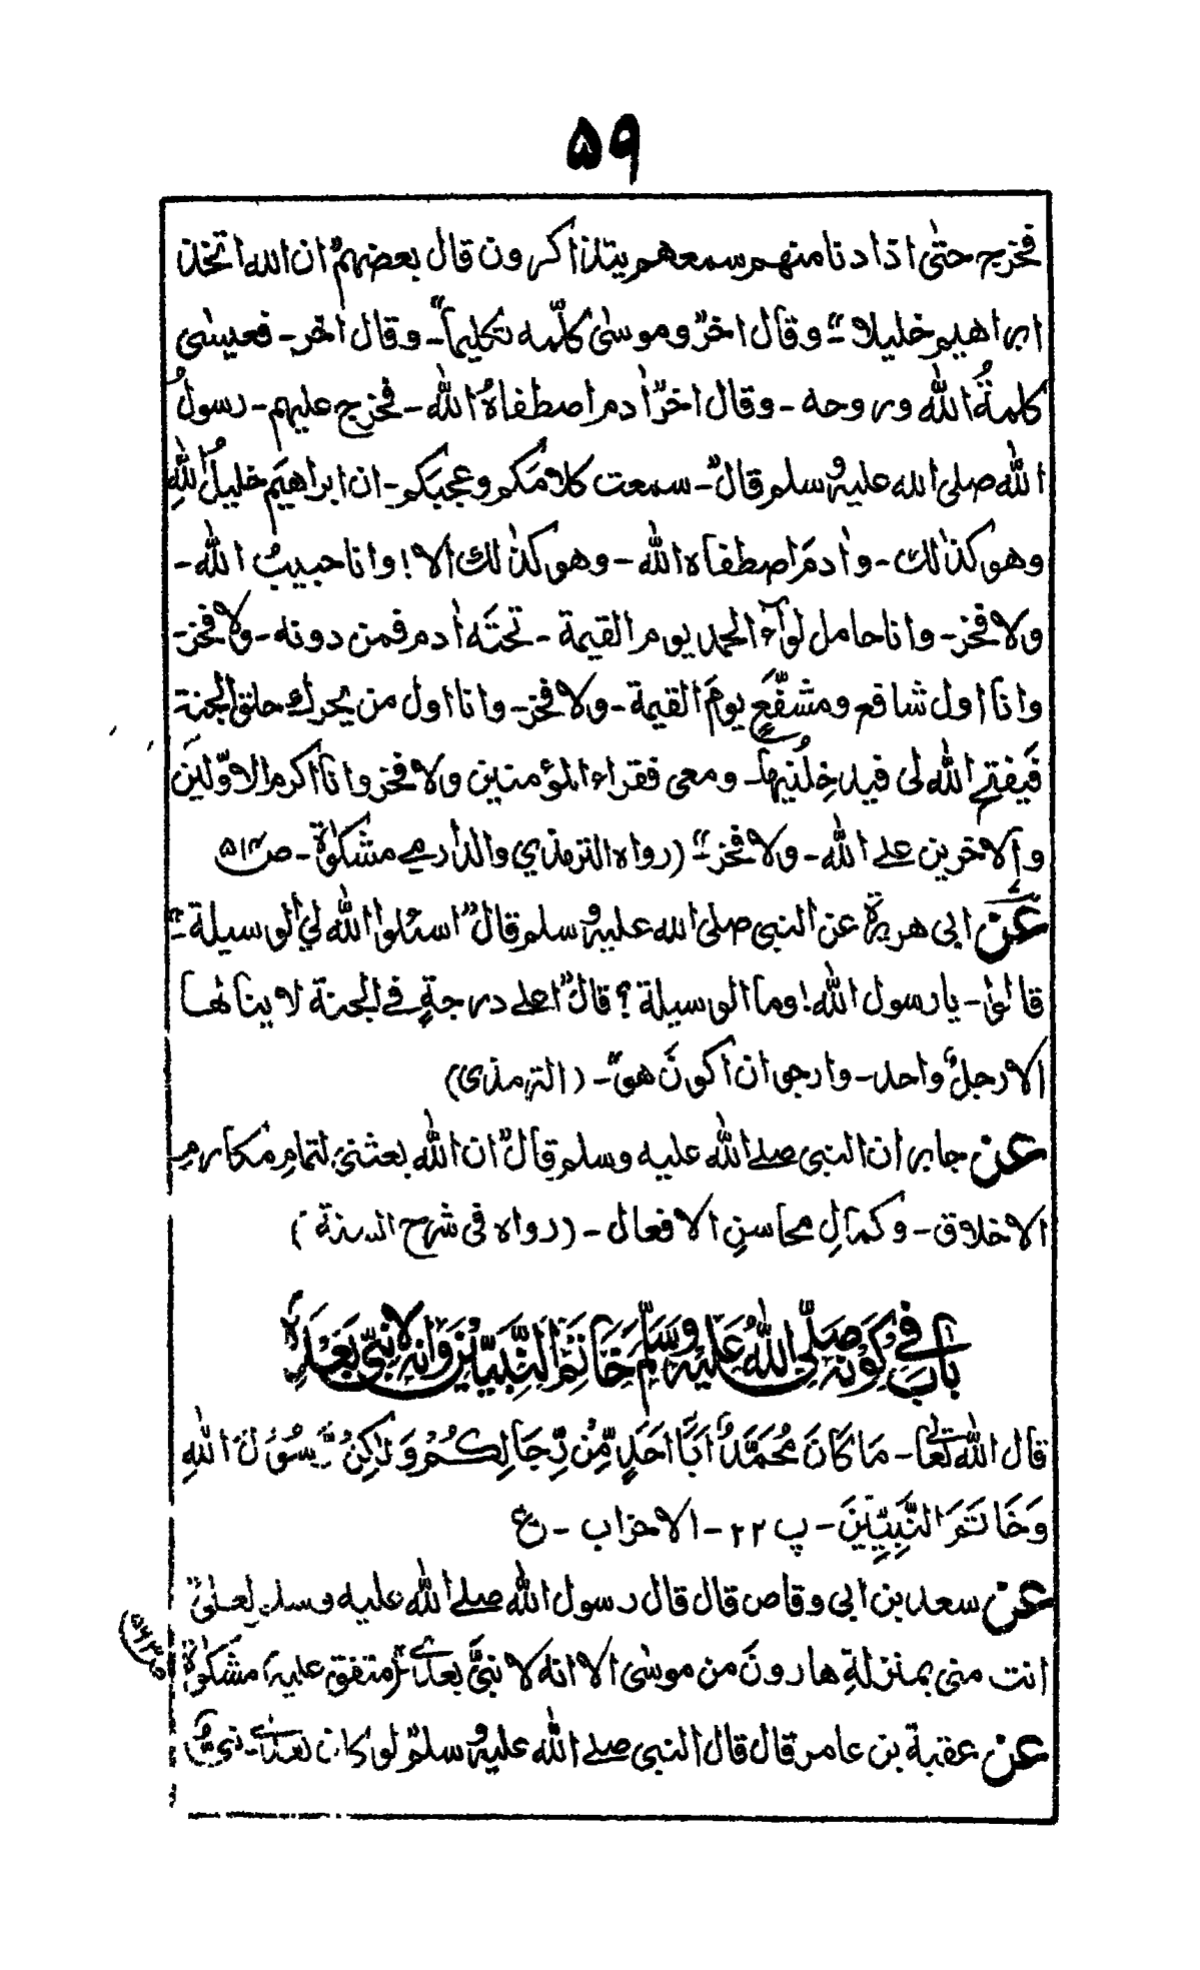 ۵۹
فخرج حتیٰ اذا دنا منهم سمعهم یتذاکرون قال بعضهم" ان الله اتخذ
ابراهیم خلیلا"۔ وقال اخر" وموسیٰ کلّمه تکلیماً"۔ وقال اٰخر۔ فعیسٰی
کلمةُ اللّٰه وروحه۔ وقال اخر" اٰدم اصطفاهُ اللّٰه۔ فخرج علیهم۔ رسولُ
اللّٰه صلی الله علیه وسلم قال"۔ سمعت کلامَکم وعجبَکم۔ ان ابراهیمَ خلیلُ اللّٰهِ
وهو کذٰلک۔ واٰدمَ اصطفاه اللّٰه۔ وهو کذٰلك الا! وانا حبیبُ اللّٰه۔
ولا فخر۔ وانا حامل لوآء الحمد یوم القیمة۔ تحتَه اٰدم فمن دونه۔ ولا فخر۔
وانآ اول شافع ومشفّعٍ یومَ القیمة۔ ولا فخر۔ وانا اول من یحرك حلق الجنة
فَیفتح اللّٰه لی فیدخِلُنیها۔ ومعی فقراء المؤمنین ولا فخر وانآ اکرم الاوّلینَ
والاٰخرین علے اللّٰه۔ ولا فخر"۔ (رواه الترمذی والدارمے مشکوٰة۔ ص۵۱۳
عَن ابی هریرة عن النبی صلی الله علیه وسلم قال" اسئلوا اللّٰه لی الوسیلة"۔
قالوا۔ یا رسول اللّٰه! وما الوسیلة؟ قال" اعلے درجةٍ فے الجنة لا ینالها
الا رجلٌ واحد۔ وارجو ان اکونَ هو"۔ (الترمذی)
عن جابر ان النبی صلے اللّٰه علیه وسلم قال" ان اللّٰه بعثنی لتمامِ مکارمِ
الاخلاق۔ وکمالِ محاسنِ الافعال۔ (رواه فی شرح السنة)
بابٌ فے کَونِه صَلّی اللّٰهُ عَلَیه وسَلّم خَاتَمَ النَّبِیّیْنَ وَانه لا نبیّ بَعْدَه
قال اللّٰه تعالٰے۔ مَا کَانَ مُحَمَّدٌ اَبَآ اَحَدٍ مِّنْ رِّجَالِکُمْ وَلٰکِنْ رَّسُوْلَ اللّٰهِ
وَخَاتَمَ النَّبِیِّینَ۔ پ ۲۲۔ الاحزاب۔ ع
عن سعد بن ابی وقاص قال قال رسول اللّٰه صلے اللّٰه علیه وسلم لعلی"
انت منی بمنزلةِ هارونَ من موسٰی الا انه لا نبیَّ بعدی" (متفق علیه مشکوٰة
عن عقبة بن عامر قال قال النبی صلے اللّٰه علیه وسلم" لو کان بعدی۔ نبیٌّ